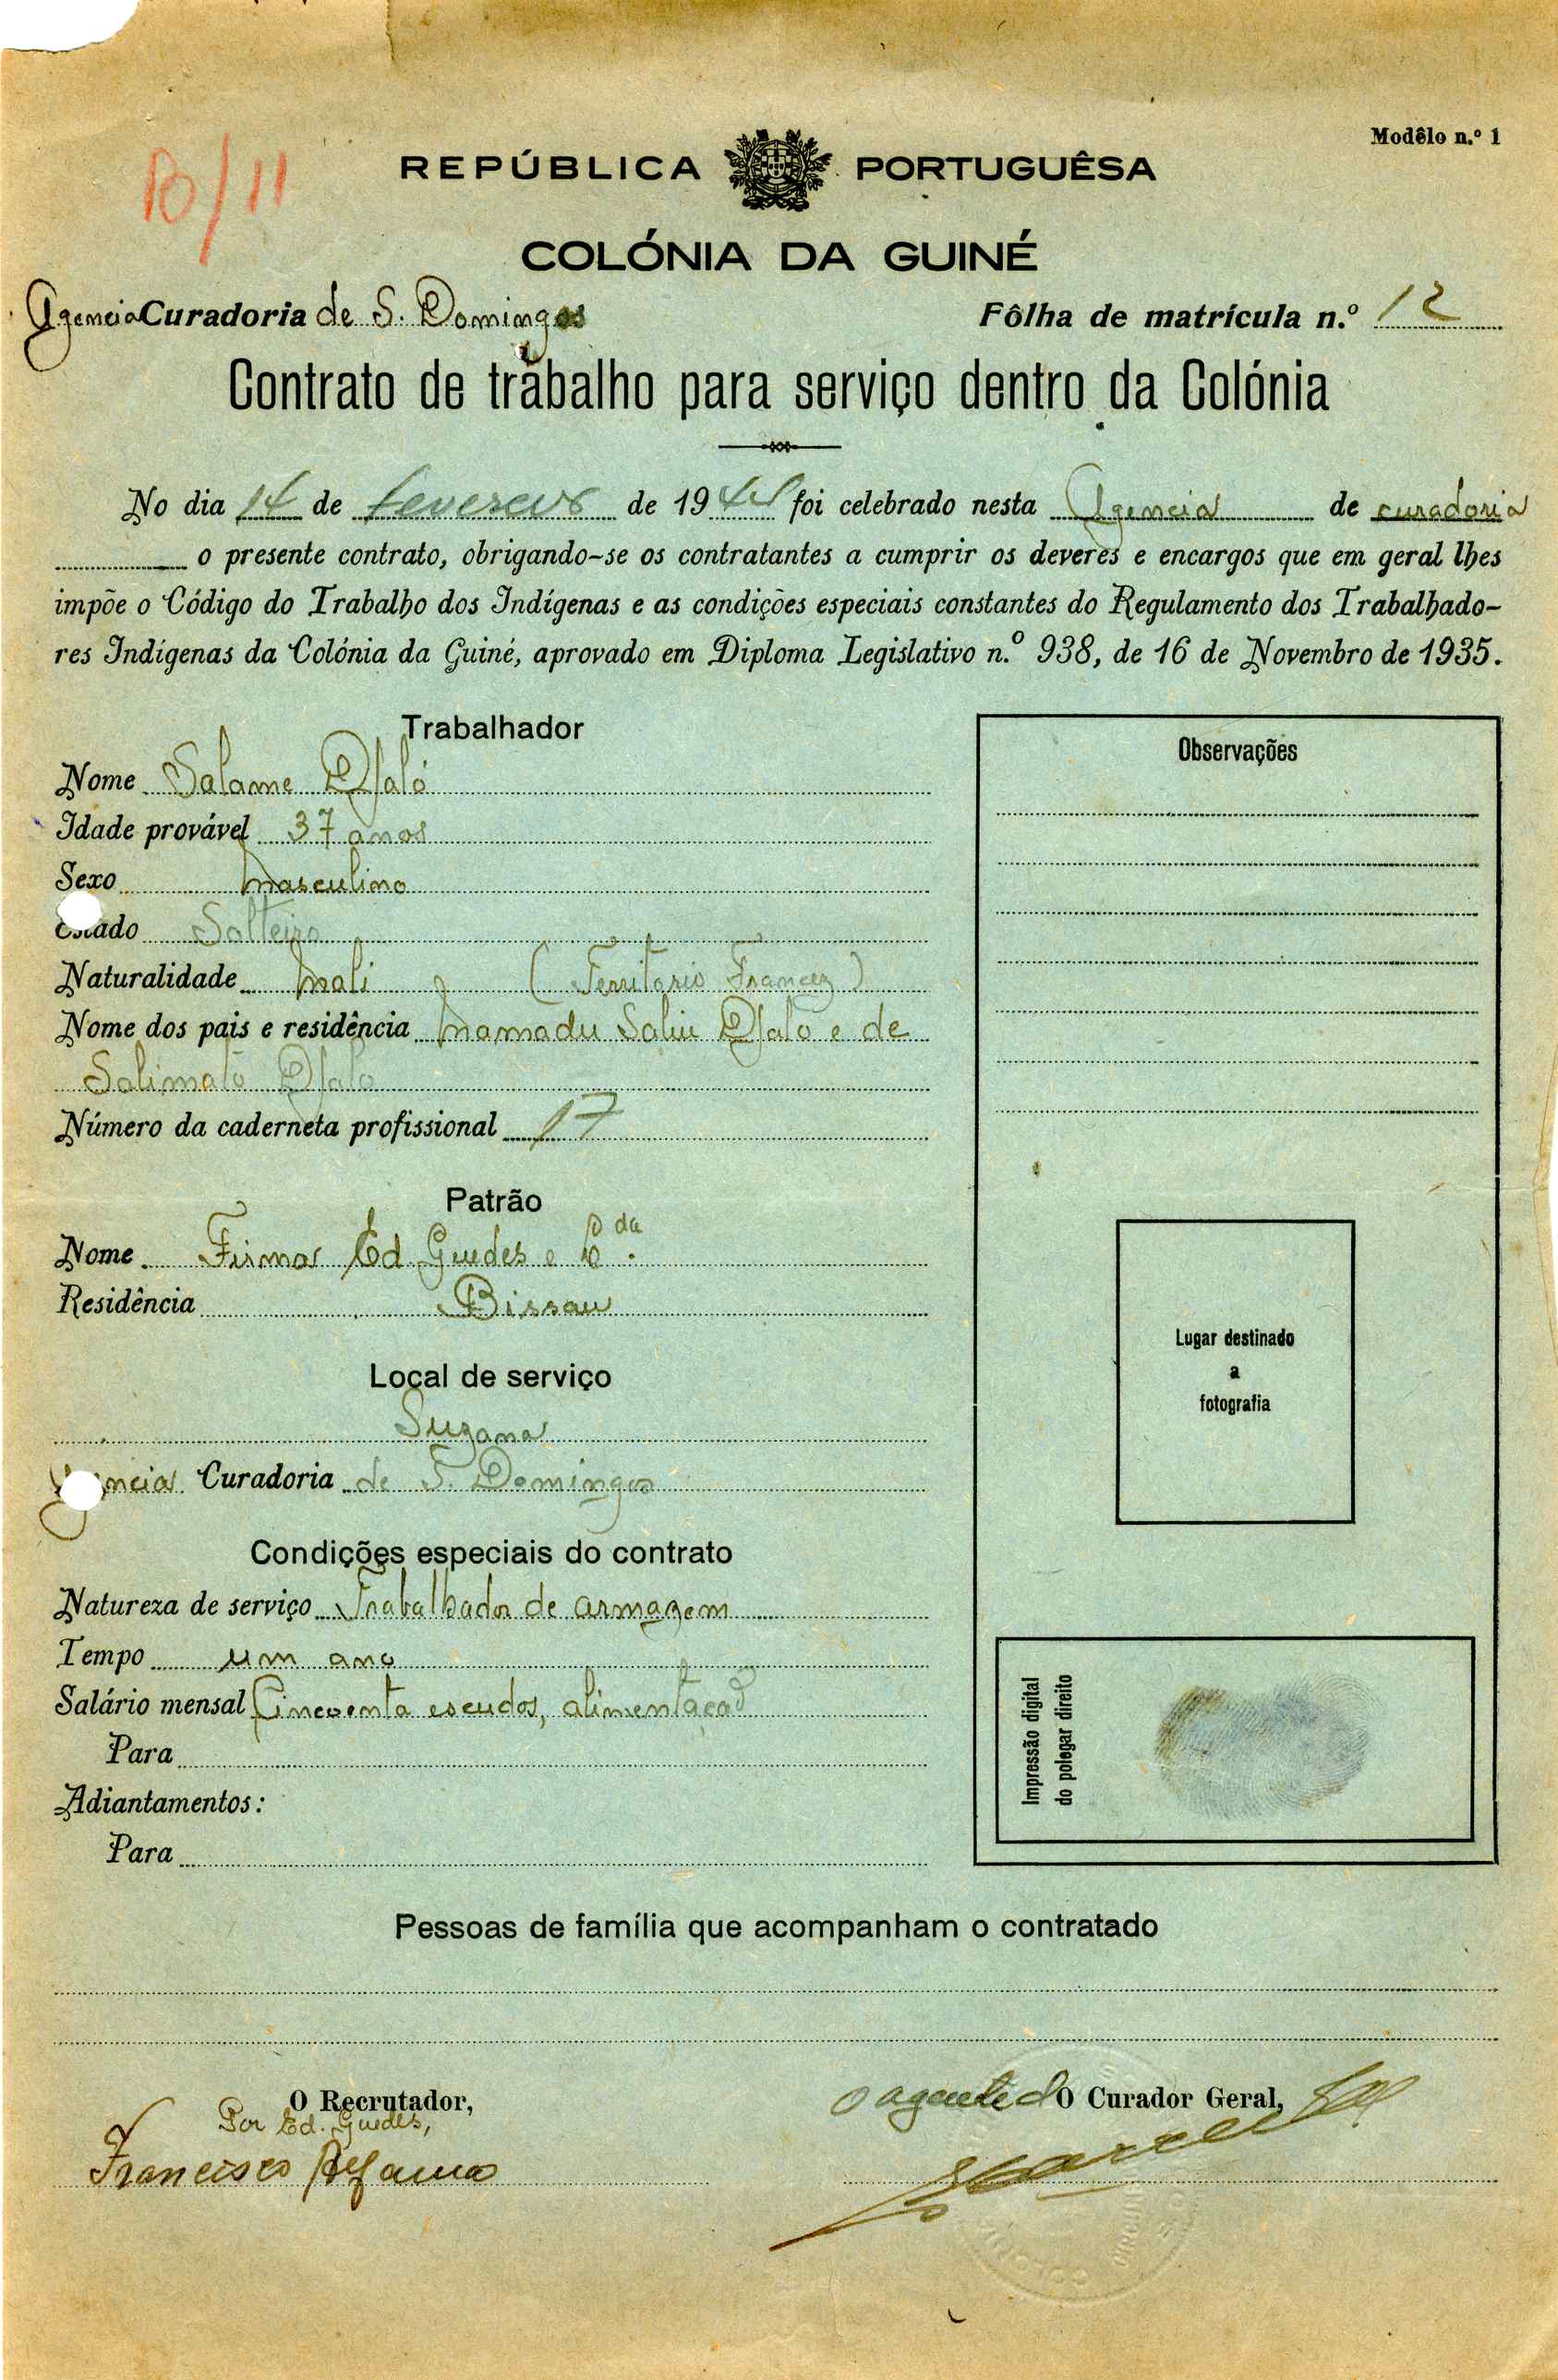 B/11
Modêlo n.º 1
REPÚBLICA PORTUGUÊSA
COLÓNIA DA GUINÉ
Agencia Curadoria de S. Domingos Fôlha de matrícula n.º 12
Contrato de trabalho para serviço dentro da Colónia
No dia 14 de fevereiro de 1941 foi celebrado nesta Agencia de curadoria
o presente contrato, obrigando-se os contratantes a cumprir os deveres e encargos que em geral lhes
impõe o Código do Trabalho dos Indígenas e as condições especiais constantes do Regulamento dos Trabalhado-
res Indígenas da Colónia da Guiné, aprovado em Diploma Legislativo n.º 938, de 16 de Novembro de 1935.
Trabalhador
Nome Salame Djaló
Idade provável 37 anos
Sexo Masculino
Estado Solteiro
Naturalidade Mali (Territorio Francez)
Nome dos pais e residência Mamadu Saliu Djaló e de
Salimató Djaló
Número da caderneta profissional 17
Patrão
Nome Firma Ed. Guedes e C.da
Residência Bissau
Local de serviço
Suzana
Agencia Curadoria de S. Domingos
Condições especiais do contrato
Natureza de serviço Trabalhador de armazem
Tempo um ano
Salário mensal Cincoenta escudos, alimentação
Para
Adiantamentos:
Para
Observações
Lugar destinado
a
fotografia
Impressão digital
do polegar direito
Pessoas de família que acompanham o contratado
O Recrutador,
Por Ed. Guedes,
Francisco
O agente do O Curador Geral,